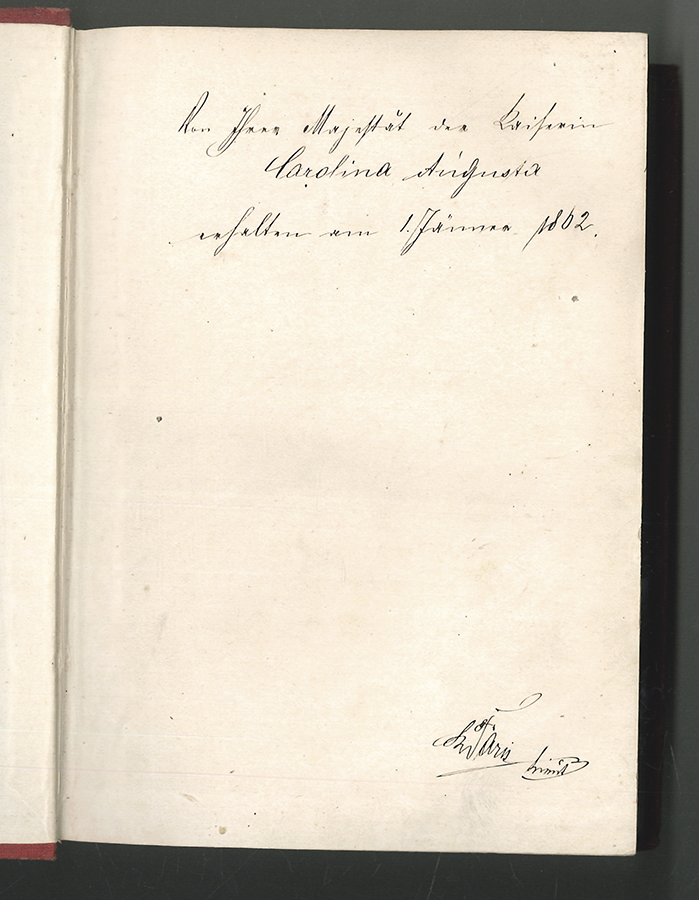 Von Ihrer Majestät der Kaiserin
Carolina Augusta
erhalten am 1. Jänner 1862.